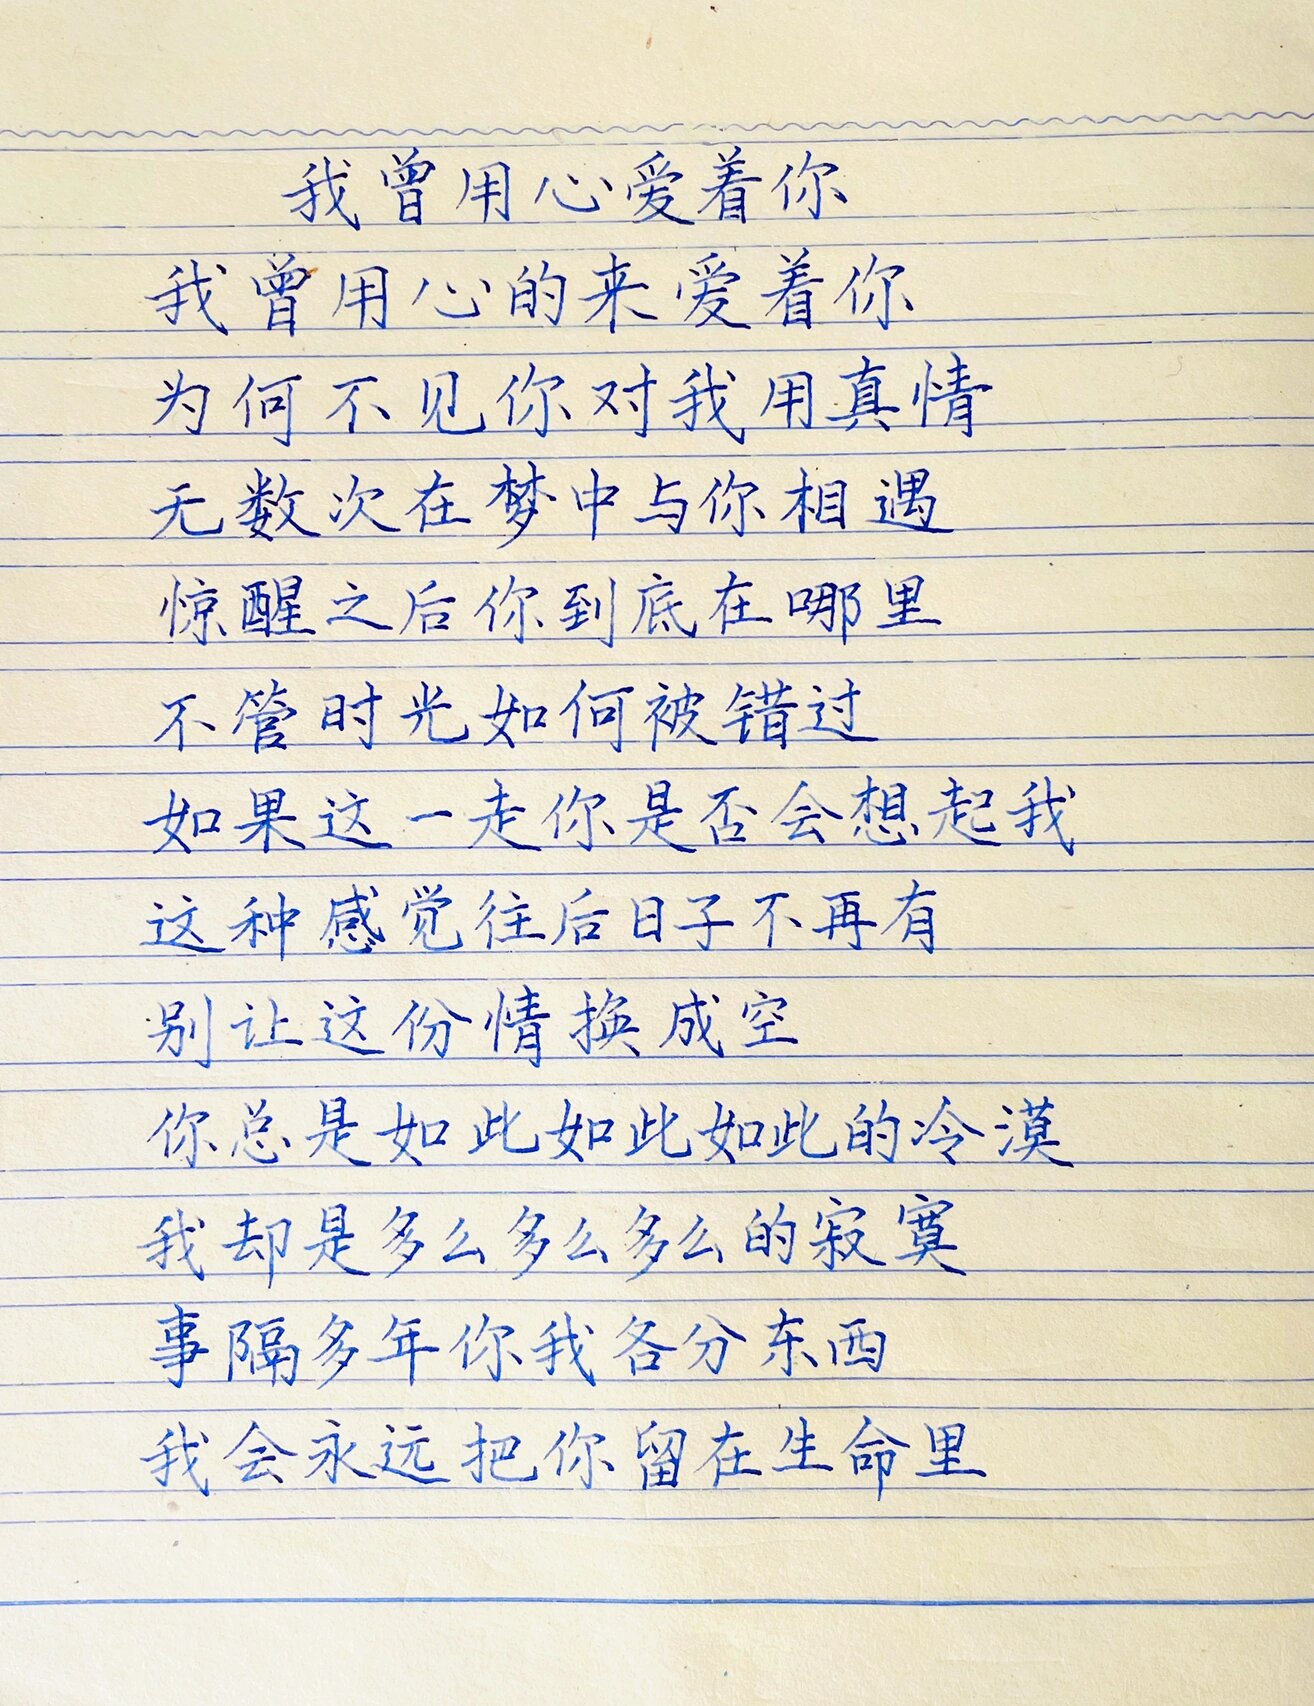 我曾用心爱着你
我曾用心的来爱着你
为何不见你对我用真情
无数次在梦中与你相遇
惊醒之后你到底在哪里
不管时光如何被错过
如果这一走你是否会想起我
这种感觉往后日子不再有
别让这份情换成空
你总是如此如此如此的冷漠
我却是多么多么多么的寂寞
事隔多年你我各分东西
我会永远把你留在生命里